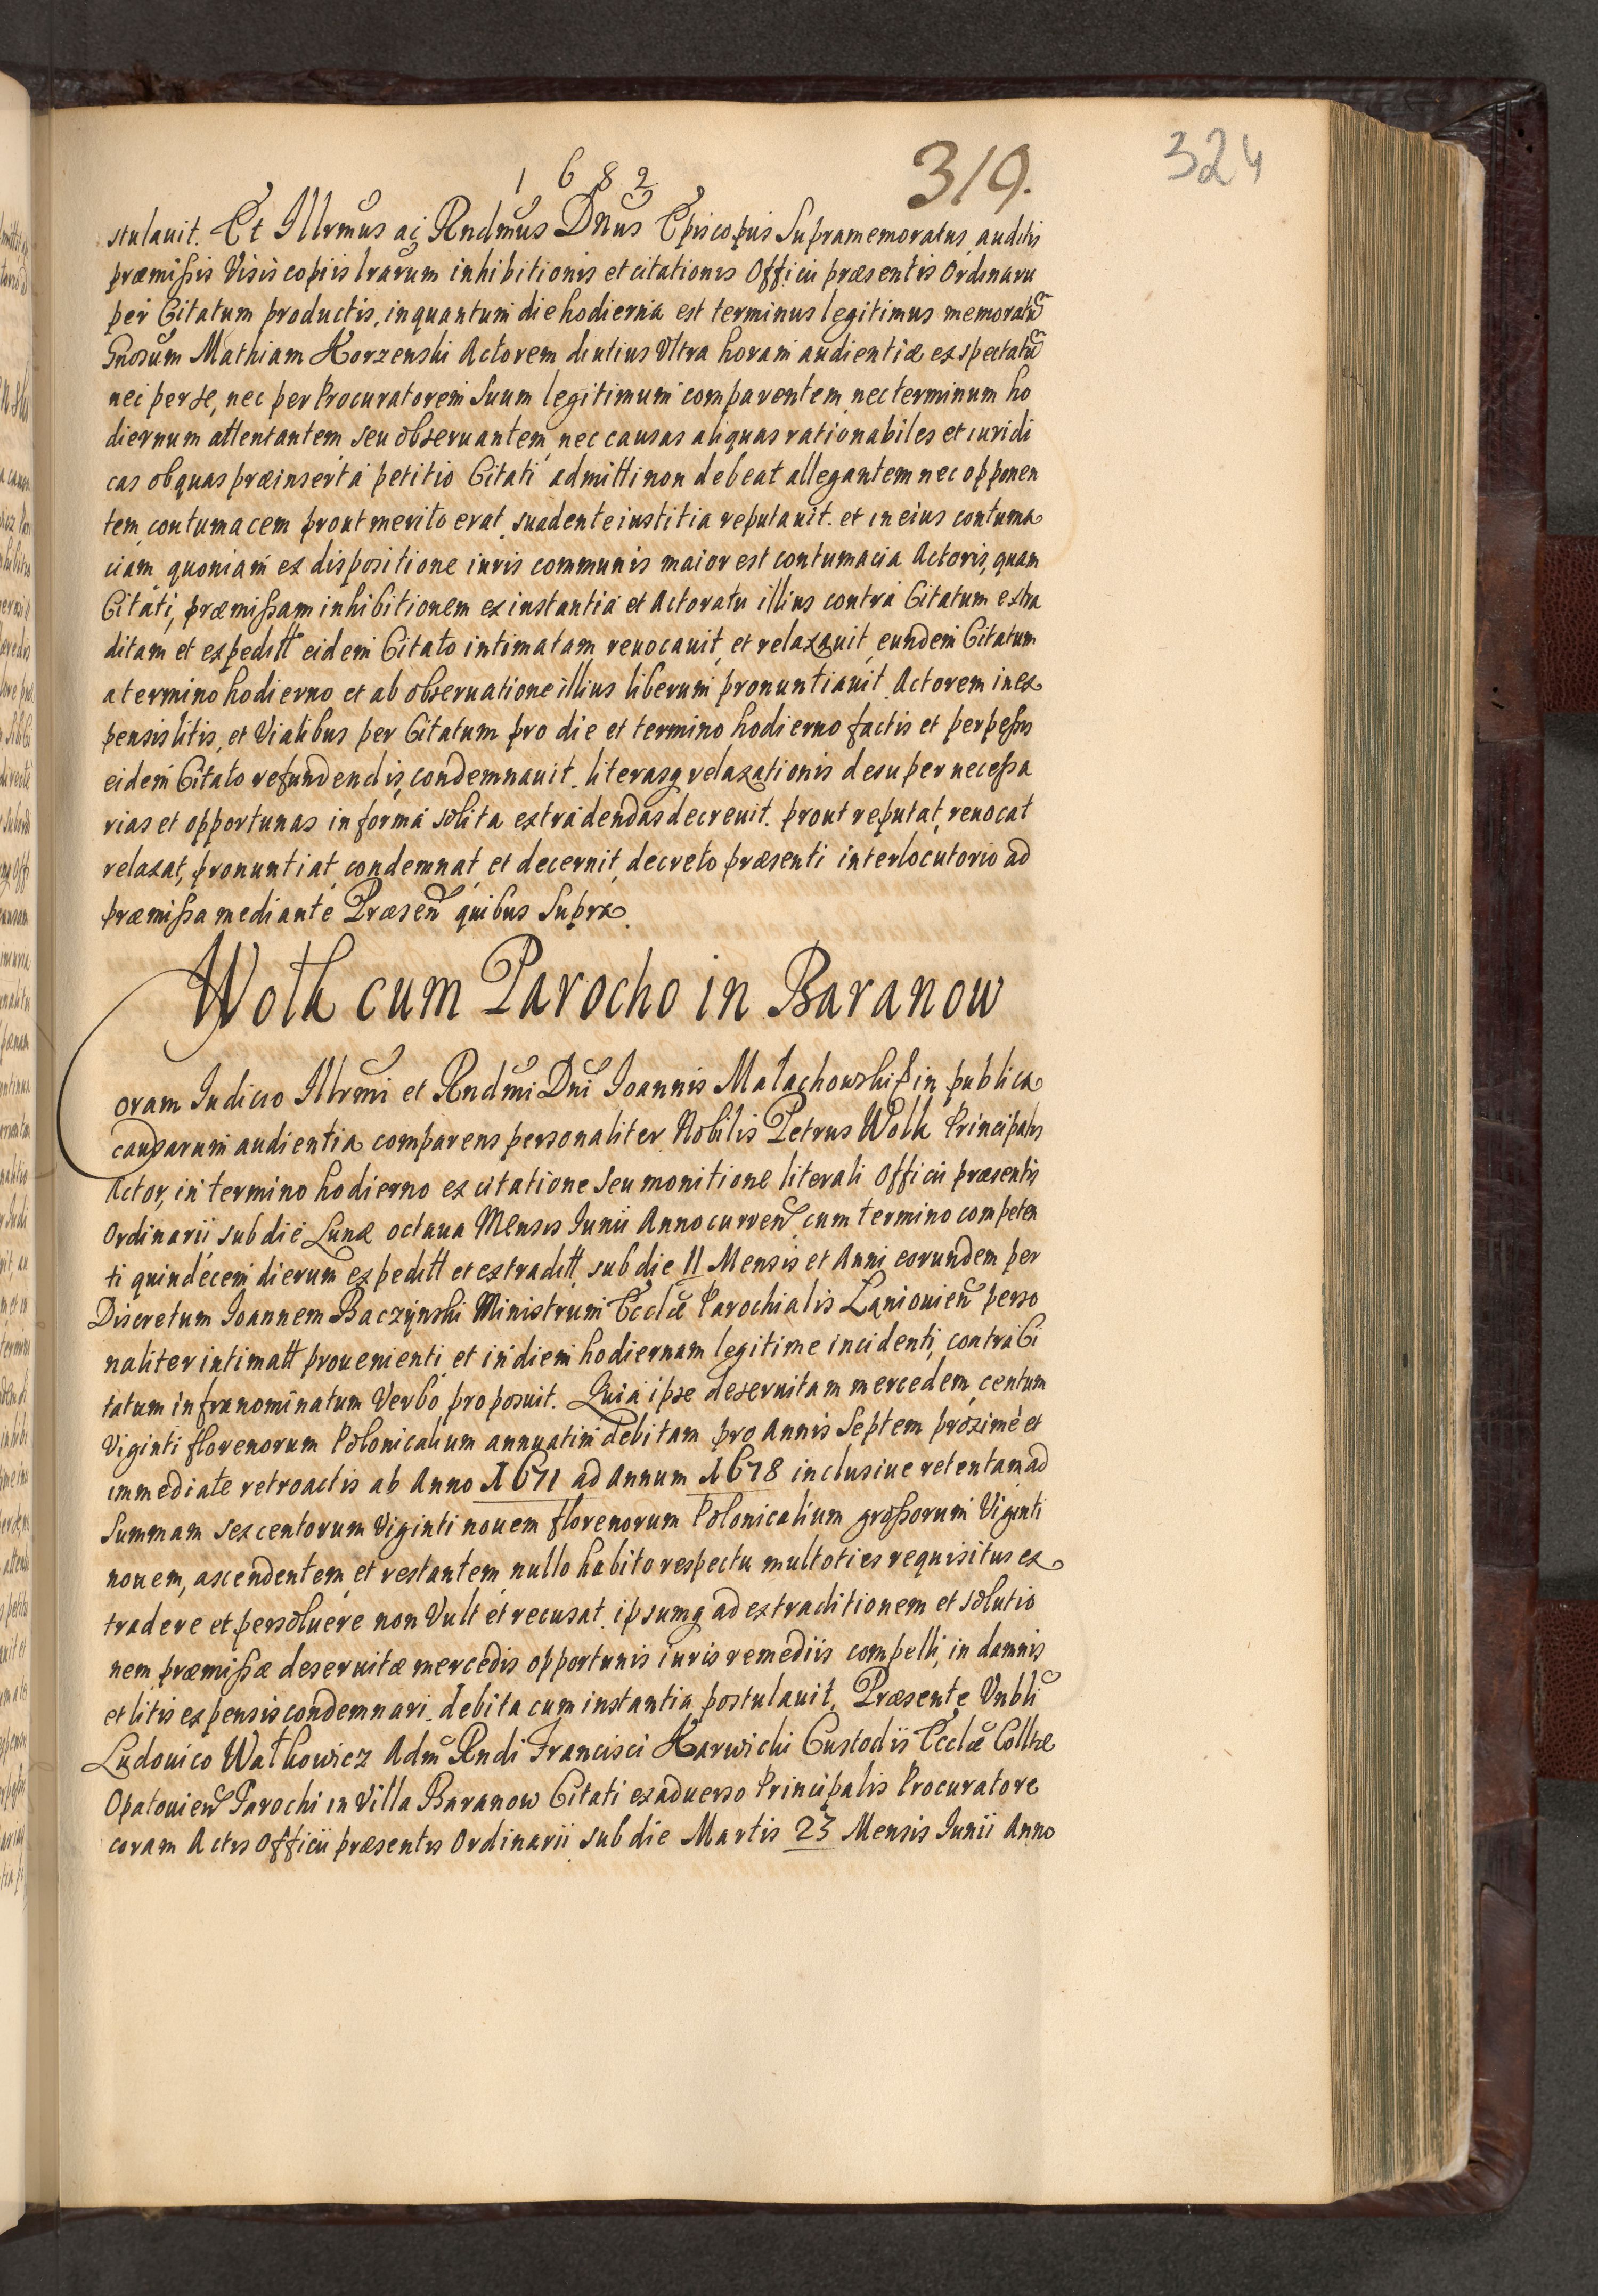 1682
319.
324
stulauit. Et Illrmus ac Rndmus Dnus Episcopus Supramemoratus auditis
præmissis Visis copiis lrarum inhibitionis et citationis Officii præsentis Ordinarii
per Citatum productis, inquantum die hodierna est terminus legitimus memoratũ
Gnosum Mathiam Korzenski Actorem diutius Vltra horam audientiæ expectatũ
nec per se, nec per Procuratorem Suum legitimum comparentem, nec terminum ho
diernum attentantem seu obseruantem, nec causas aliquas rationabiles et iuridi
cas ob quas præinserta petitio Citati admitti non debeat allegantem nec opponen
tem contumacem prout merito erat suadente iustitia reputauit. et in eius contuma
ciam quoniam ex dispositione iuris communis maior est contumacia Actoris, quam
Citati, præmissam inhibitionem ex instantia et Actoratu illius contra Citatum extra
ditam et expeditt eidem Citato intimatam reuocauit, et relaxauit, eundem Citatum
a termino hodierno et ab obseruatione illius liberum pronuntiauit. Actorem in ex
pensis litis, et Vialibus per Citatum pro die et termino hodierno factis et perpessis
eidem Citato refundendis, condemnauit. literasq relaxationis desuper necessa
rias et opportunas in forma solita extradendas decreuit. prout reputat, reuocat
relaxat, pronuntiat, condemnat et decernit, decreto præsenti interlocutorio ad
præmissa mediante Præsen quibus Supra.
Wolk cum Parocho in Baranow
Coram Iudicio Illrmi et Rndmi Dni Joannis Małachowski p in publica
causarum audientia comparens personaliter Nobilis Petrus Wolk Principalis
Actor, in termino hodierno ex citatione Seu monitione literali Officii præsentis
Ordinarii sub die Lunæ octaua Mensis Iunii Anno curren, cum termino competen
ti quindecem dierum expeditt et extraditt, sub die 11 Mensis et Anni eorundem per
Discretum Joannem Baczynski Ministrum Ecclæ Parochialis Laniouien perso
naliter intimatt prouenienti et in diem hodiernam legitime incidenti, contra Ci
tatum infranominatum Verbo proposuit. Quia ipse deseruitam mercedem, centum
Viginti florenorum Polonicalium annuatim debitam pro Annis Septem proxime et
immediate retroactis ab Anno 1671 ad Annum 1678 inclusiue retentam ad
Summam sexcentorum Viginti nouem florenorum Polonicalium grossorum Viginti
nouem, ascendentem et restantem nullo habito respectu multoties requisitus ex
tradere et persoluere non Vult et recusat. ipsumq ad extraditionem et solutio
nem præmissæ deseruitæ mercedis opportunis iuris remediis compelli, in damnis
et litis expensis condemnari. debita cum instantia postulauit, Præsente Vnbli
Ludouico Wałkowicz Adm Rndi Francisci Karwicki Custodis Ecclæ Colltæ
Opatouien Parochi in Villa Baranow Citati ex aduerso Principalis Procuratore
coram Actis Officii præsentis Ordinarii sub die Martis 23 Mensis Iunii Anno